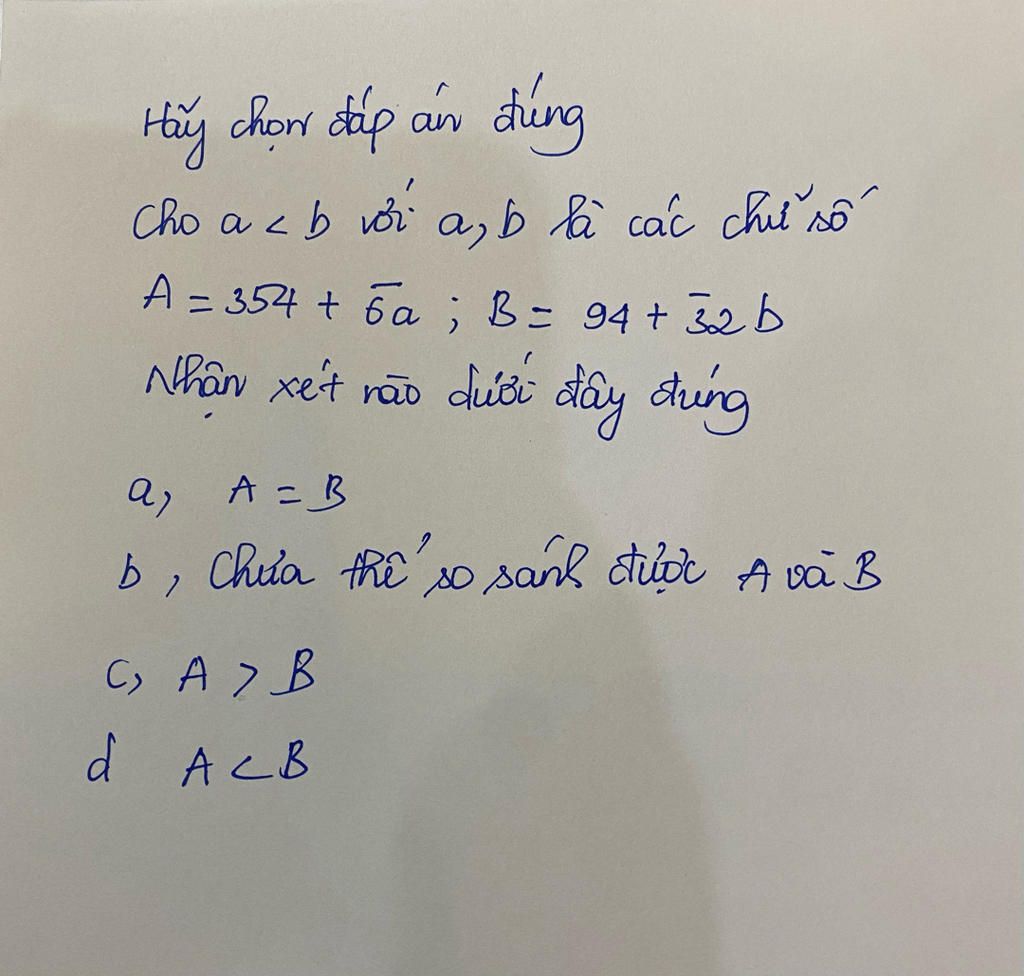 Hãy chọn đáp án đúng
Cho a < b với a, b là các chữ số
A = 354 + 6̅a ; B = 94 + 3̅2b
Nhận xét nào dưới đây đúng
a, A = B
b, Chưa thể so sánh được A và B
c, A > B
d A < B